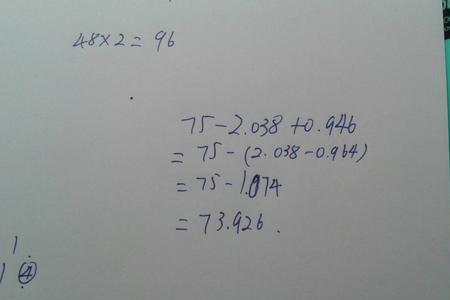 48×2=96
75-2.038+0.946
=75-(2.038-0.964)
=75-1.074
=73.926.
1.
1④